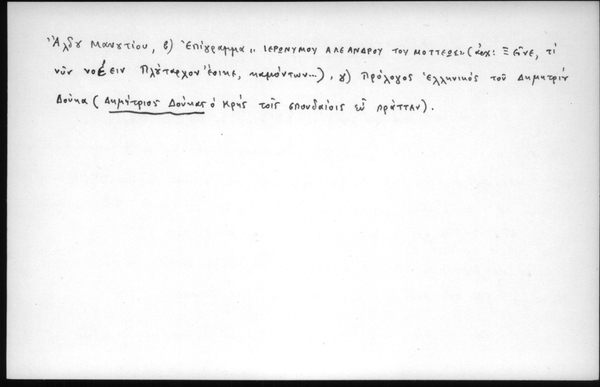 Ἄλδου Μανουτίου, β) Ἐπίγραμμα „ ΙΕΡΩΝΥΜΟΥ ΑΛΕΑΝΔΡΟΥ ΤΟΥ ΜΟΤΤΕΩΣ„ (ἀρχ: Ξεῖνε, τί
νῦν νοέειν Πλούταρχον ἔοικε, καμόντων...), γ) Πρόλογος ἑλληνικός τοῦ Δημητρίου
Δούκα (Δημήτριος Δούκας ὁ Κρής τοῖς σπουδαίοις εὖ πράτταν).